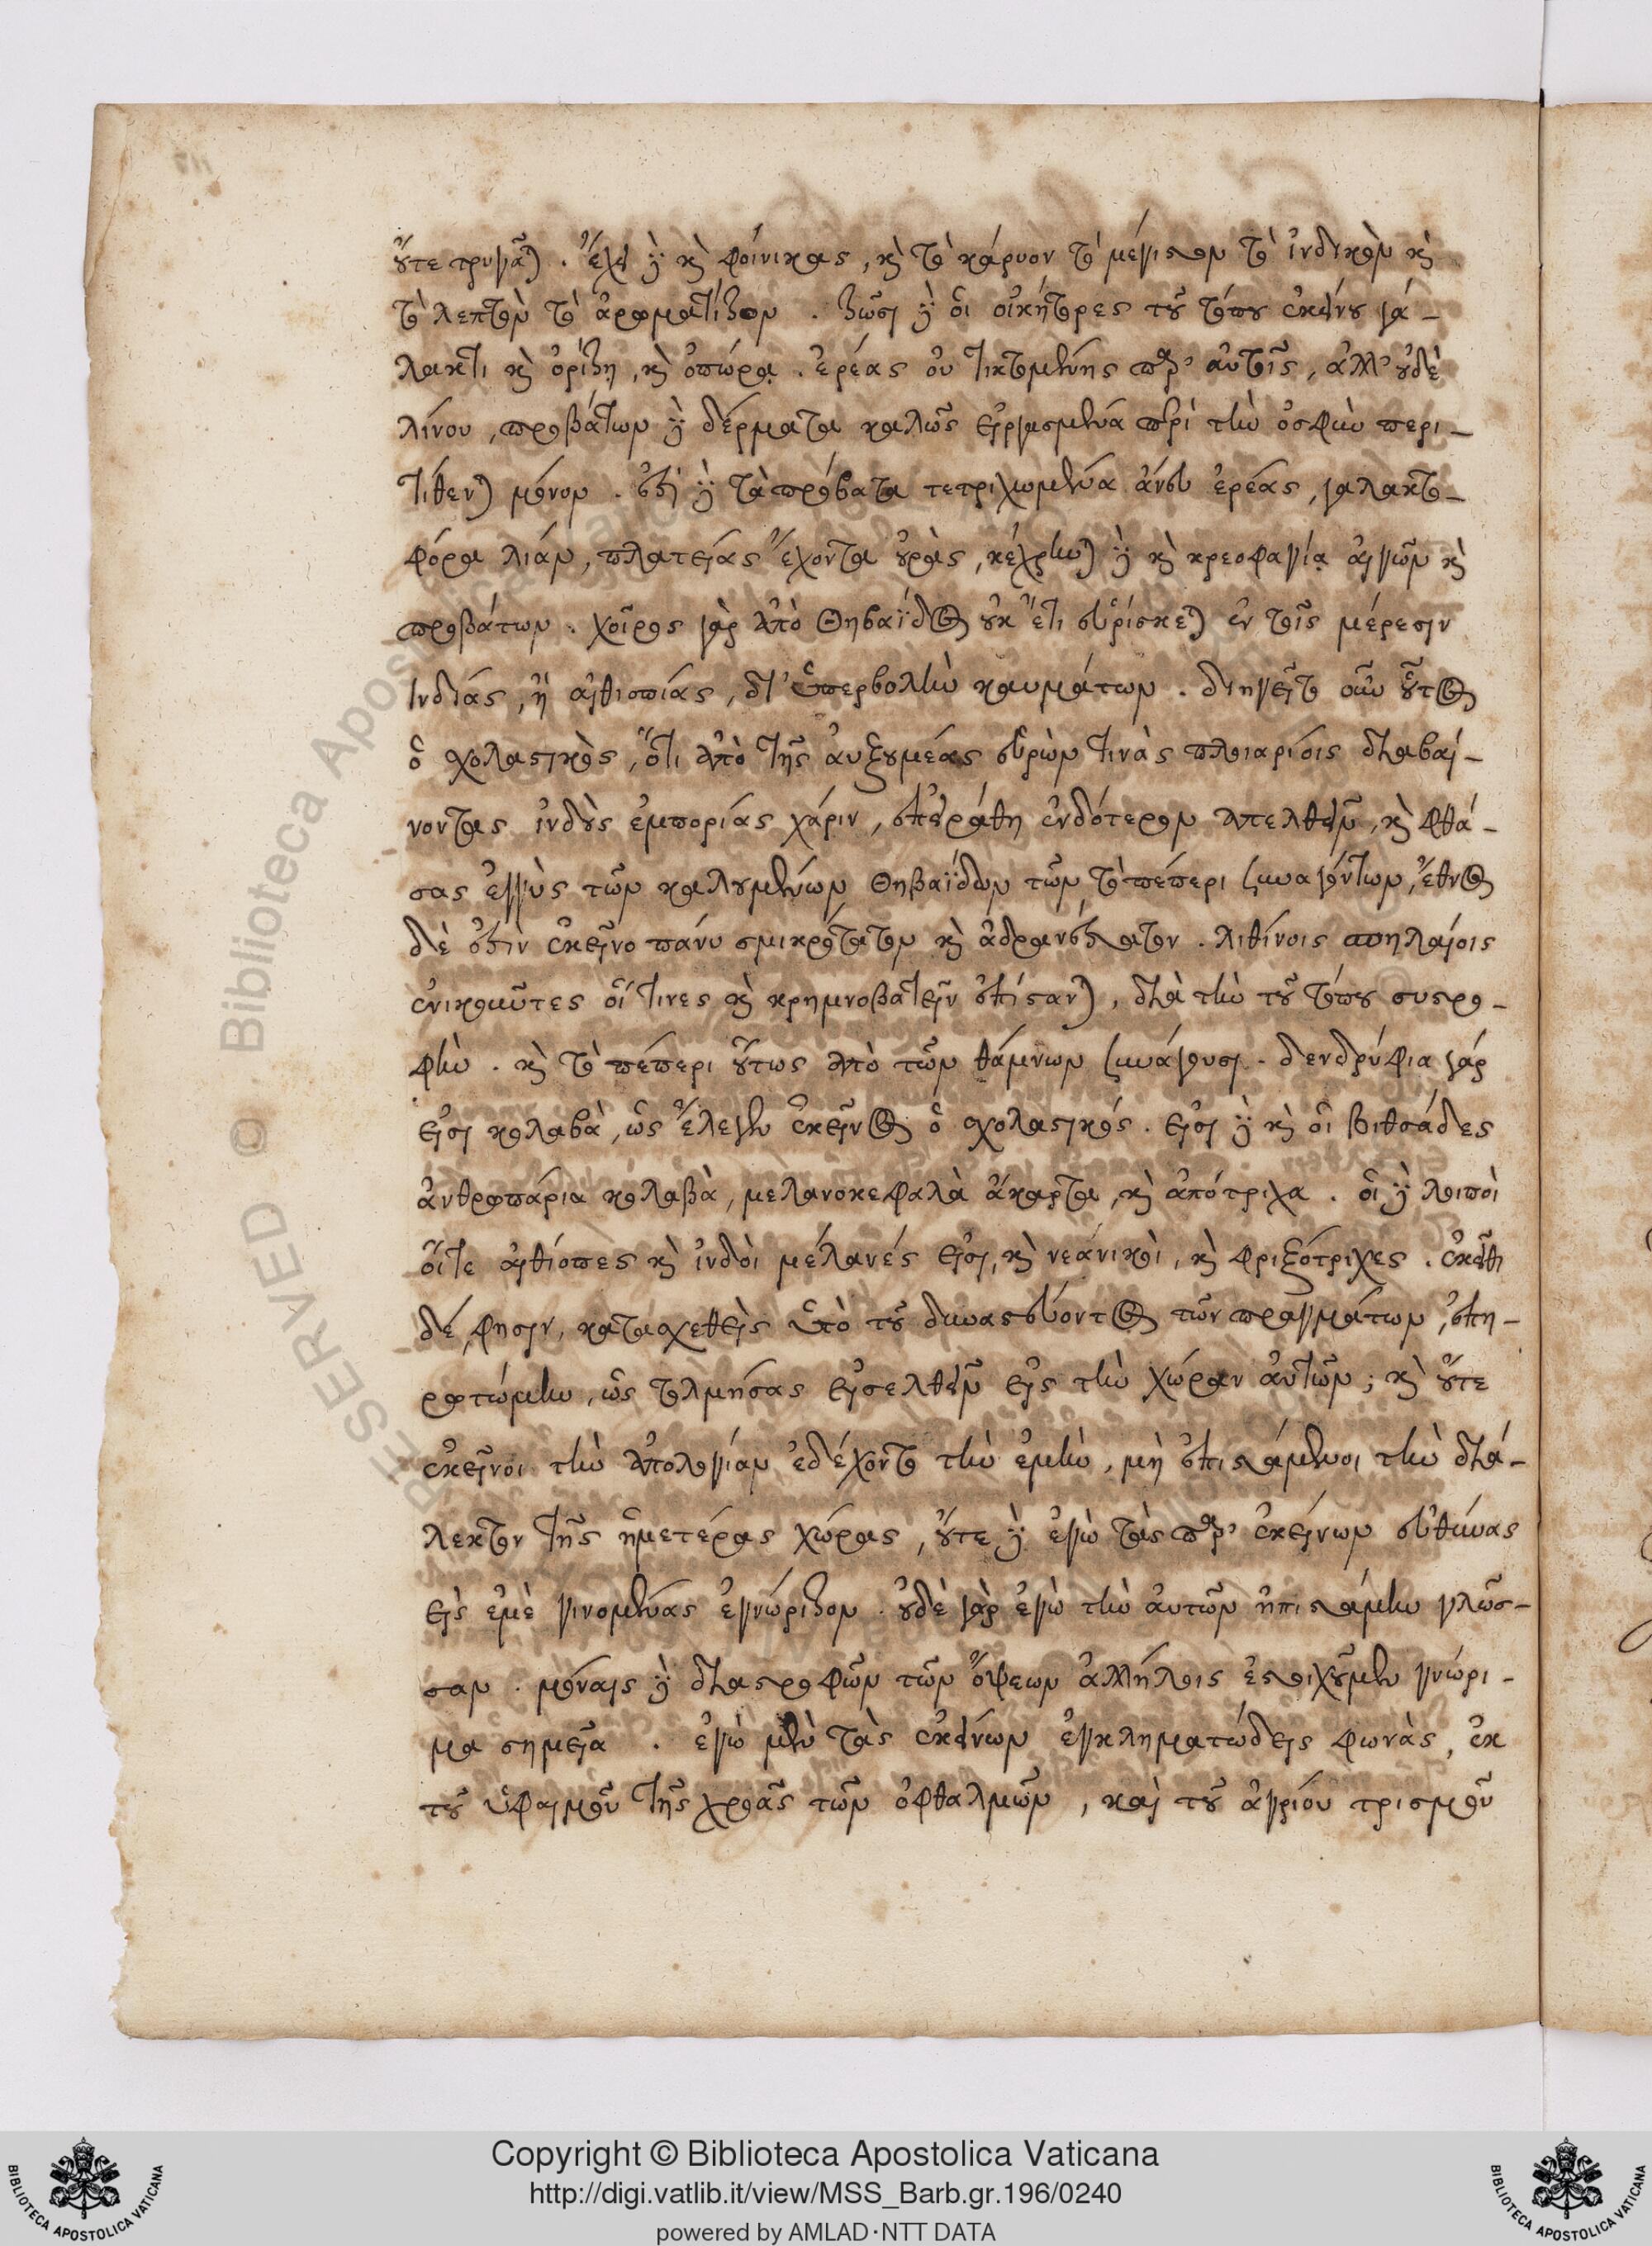 οὔτε τρυγᾶται. ἔχει δὲ καὶ φοίνικας, καὶ τὸ κάρυον τὸ μέγιστον τὸ ἰνδικὸν καὶ
τὸ λεπτὸν τὸ ἀρωματίζον. ζῶσι δὲ οἱ οἰκήτορες τοῦ τόπου ἐκείνου γά-
λακτι καὶ ὀρίζῃ, καὶ ὀπώρᾳ. ἐρέας οὐ τικτομένης παρ' αὐτοῖς, ἀλλ' οὐδὲ
λίνου, προβάτων δὲ δέρματα καλῶς εἰργασμένα περὶ τὴν ὀσφὺν περι-
τίθενται μόνον. ἐστὶ δὲ τὰ πρόβατα τετριχωμένα ἄνευ ἐρέας, γαλακτο-
φόρα λιάν, πλατείας ἔχοντα οὐράς, κέχρηνται δὲ καὶ κρεοφαγίᾳ αἰγῶν καὶ
προβάτων. χοῖρος γὰρ ἀπὸ Θηβαΐδος οὐκ ἔτι εὑρίσκεται ἐν τοῖς μέρεσιν
Ἰνδίας, ἢ αἰθιοπίας, δι' ὑπερβολὴν καυμάτων. διηγεῖτο οὖν οὗτος
ὁ σχολαστικὸς, ὅτι ἀπὸ τῆς αὐξουμέας εὑρὼν τινὰς πλοιαρίοις διαβαί-
νοντας ἰνδοὺς ἐμπορίας χάριν, ἐπειράθη ἐνδότερον ἀπελθεῖν, καὶ φθά-
σας ἐγγὺς τῶν καλουμένων Θηβαΐδων τῶν τὸ πέπερι συναγόντων, ἔθνος
δὲ ἐστὶν ἐκεῖνο πάνυ σμικρότατον καὶ ἀδρανέστατον. λιθίνοις σπηλαίοις
ἐνικοῦντες οἵτινες καὶ κρημνοβατεῖν ἐπίσανται, διὰ τὴν τοῦ τόπου συστρο-
φὴν. καὶ τὸ πέπερι οὕτως ἀπὸ τῶν θάμνων συνάγουσι. δενδρύφια γάρ
εἰσι κολαβὰ, ὡς ἔλεγεν ἐκεῖνος ὁ σχολαστικός. εἰσὶ δὲ καὶ οἱ Βιθσάδες
ἀνθρωπάρια κολαβὰ, μελανοκεφαλὰ ἄκαρτα, καὶ ἀπότριχα. οἱ δὲ λοιποὶ
οἵτε αἰθίοπες καὶ ἰνδοὶ μέλανές εἰσι, καὶ νεάνικοὶ, καὶ φριξότριχες. ἐκεῖθι
δέ, φησιν, κατασχεθεὶς ὑπὸ τοῦ δυναστεύοντος τῶν πραγμάτων, ἐπη-
ρωτώμην, ὡς τολμήσας εἰσελθεῖν εἰς τὴν χώραν αὐτῶν; καὶ οὔτε
ἐκεῖνοι τὴν ἀπολογίαν ἐδέχοντο τὴν ἐμὴν, μὴ ἐπιστάμενοι τὴν διά-
λεκτον τῆς ἡμετέρας χώρας, οὔτε δὲ ἐγὼ τὰς παρ' ἐκείνων εὐθύνας
εἰς ἐμὲ γινομένας ἐγνώριζον. οὐδὲ γὰρ ἐγὼ τὴν αὐτῶν ἠπιστάμην γλῶσ-
σαν. μόναις δὲ διαστροφῶν τῶν ὄψεων ἀλλήλοις ἐστοιχοῦμεν γνώρι-
μα σημεῖα. ἐγὼ μὲν τὰς ἐκείνων ἐγκληματώδεις φωνὰς, ἐκ
τοῦ ὑφαιμοῦ τῆς χροᾶς τῶν ὀφθαλμῶν, καὶ τοῦ ἀγρίου τρισμοῦ
Copyright © Biblioteca Apostolica Vaticana
http://digi.vatlib.it/view/MSS_Barb.gr.196/0240
powered by AMLAD·NTT DATA